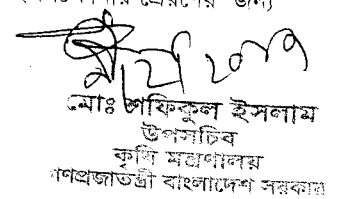 প্রেরণের জন্য
মোঃ শফিকুল ইসলাম
উপসচিব
কৃষি মন্ত্রণালয়
গণপ্রজাতন্ত্রী বাংলাদেশ সরকার